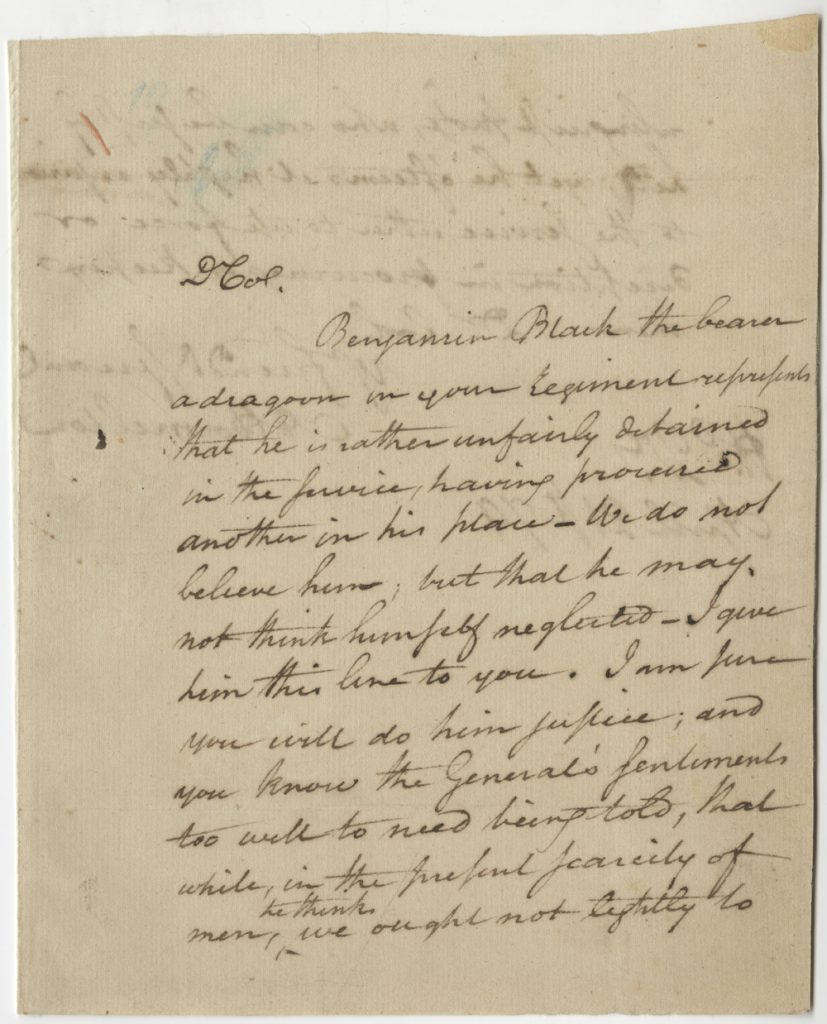 D Col.
Benjamin Black the bearer
a dragoon in your Regiment represents
that he is rather unfairly detained
in the service, having procured
another in his place – We do not
believe him; but that he may
not think himself neglected – I give
him this line to you. I am sure
you will do him justice; and
you know the General's sentiments
too well to need being told, that
while, in the present scarcity of
he thinks
men, ^ we ought not lightly to